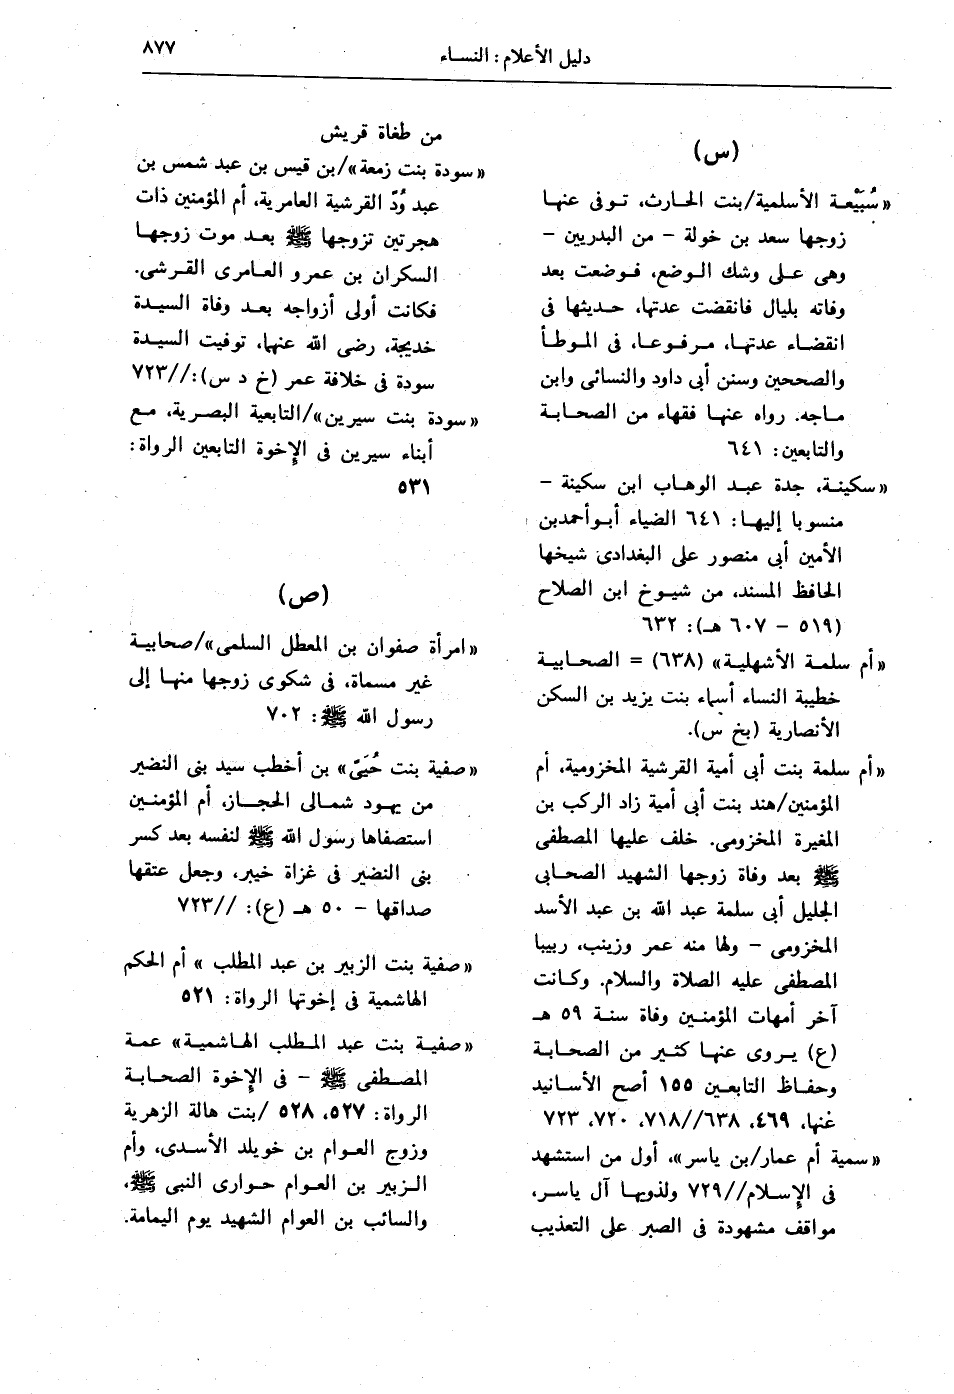 دليل الأعلام: النساء
٨٧٧
(س)
«سُبَيْعة الأسلمية/بنت الحارث، توفى عنها
زوجها سعد بن خولة - من البدريين -
وهى على وشك الوضع، فوضعت بعد
وفاته بليال فانقضت عدتها، حديثها فى
انقضاء عدتها، مرفوعا، فى الموطأ
والصحيحين وسنن أبى داود والنسائى وابن
ماجه. رواه عنها فقهاء من الصحابة
والتابعين: ٦٤١
«سكينة، جدة عبد الوهاب ابن سكينة -
منسوبا إليها: ٦٤١ الضياء أبوأحمدبن
الأمين أبى منصور على البغدادى شيخها
الحافظ المسند، من شيوخ ابن الصلاح
(٥١٩ - ٦٠٧ هـ): ٦٣٢
«أم سلمة الأشهلية» (٦٣٨) = الصحابية
خطيبة النساء أسماء بنت يزيد بن السكن
الأنصارية (بخ س).
«أم سلمة بنت أبى أمية القرشية المخزومية، أم
المؤمنين/هند بنت أبى أمية زاد الركب بن
المغيرة المخزومى. خلف عليها المصطفى
ﷺ بعد وفاة زوجها الشهيد الصحابى
الجليل أبى سلمة عبد الله بن عبد الأسد
المخزومى - ولها منه عمر وزينب، ربيبا
المصطفى عليه الصلاة والسلام. وكانت
آخر أمهات المؤمنين وفاة سنة ٥٩ هـ
(ع) يروى عنها كثير من الصحابة
وحفاظ التابعين ١٥٥ أصح الأسانيد
عنها، ٤٦٩، ٦٣٨//٧١٨، ٧٢٠، ٧٢٣
«سمية أم عمار/بن ياسر»، أول من استشهد
فى الإسلام//٧٢٩ ولذويها آل ياسر،
مواقف مشهودة فى الصبر على التعذيب
من طغاة قريش
«سودة بنت زمعة»/بن قيس بن عبد شمس بن
عبد وُدّ القرشية العامرية، أم المؤمنين ذات
هجرتين تزوجها ﷺ بعد موت زوجها
السكران بن عمرو العامرى القرشى.
فكانت أولى أزواجه بعد وفاة السيدة
خديجة، رضى الله عنهما، توفيت السيدة
سودة فى خلافة عمر (خ د س)://٧٢٣
«سودة بنت سيرين»/التابعية البصرية، مع
أبناء سيرين فى الإخوة التابعين الرواة:
٥٣١
(ص)
«امرأة صفوان بن المعطل السلمى»/صحابية
غير مسماة، فى شكوى زوجها منها إلى
رسول الله ﷺ: ٧٠٢
«صفية بنت حُيَىّ» بن أخطب سيد بنى النضير
من يهود شمالى الحجاز، أم المؤمنين
استصفاها رسول الله ﷺ لنفسه بعد كسر
بنى النضير فى غزاة خيبر، وجعل عتقها
صداقها - ٥٠ هـ (ع): //٧٢٣
«صفية بنت الزبير بن عبد المطلب » أم الحكم
الهاشمية فى إخوتها الرواة: ٥٢١
«صفية بنت عبد المطلب الهاشمية» عمة
المصطفى ﷺ - فى الإخوة الصحابة
الرواة: ٥٢٧، ٥٢٨ /بنت هالة الزهرية
وزوج العوام بن خويلد الأسدى، وأم
الزبير بن العوام حوارى النبى ﷺ،
والسائب بن العوام الشهيد يوم اليمامة.